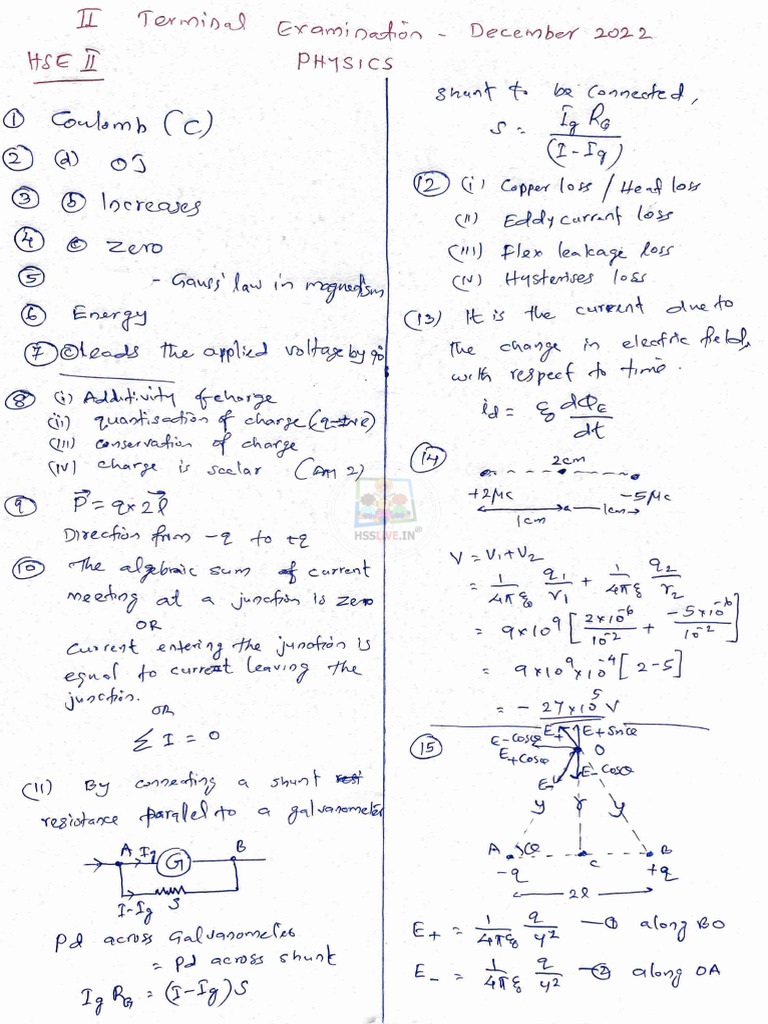 II Terminal Examination - December 2022
HSE II
PHYSICS
① Coulomb (C)
② (d) 0J
③ ⓑ Increases
④ ⓒ Zero
⑤ - Gauss' law in magnetism
⑥ Energy
⑦ ⓒ Leads the applied voltage by 90
⑧ (i) Additivity of charge
(ii) quantisation of charge (q=±ne)
(iii) conservation of charge
(iv) charge is scalar (Any 2)
⑨ P⃗ = q×2l⃗
Direction from -q to +q
⑩ The algebraic sum of current
meeting at a junction is zero
OR
Current entering the junction is
equal to current leaving the
junction.
OR
Σ I = 0
(11) By connecting a shunt
resistance parallel to a galvanometer
A Ig G B
I-Ig S
Pd across Galvanometer
= Pd across shunt
Ig RG = (I-Ig)S
shunt to be connected,
S = Ig RG / (I-Ig)
⑫ (i) Copper loss / Heat loss
(ii) Eddy current loss
(iii) Flex leakage loss
(iv) Hysterises loss
(13) It is the current due to
the change in electric field,
with respect to time.
id = ε0 dΦE/dt
⑭ 2cm
+2μc -5μc
1cm 1cm
V = V1+V2
= 1/4πε0 q1/r1 + 1/4πε0 q2/r2
= 9×10⁹ [2×10⁻⁶/10⁻² + -5×10⁻⁶/10⁻²]
= 9×10⁹×10⁻⁴ [2-5]
= - 27×10⁵ V
⑮ E+ E+sinθ
E-cosθ O
E+cosθ
E- E-cosθ
y r y
A θ C B
-q +q
2l
E+ = 1/4πε0 q/y² — ① along BO
E- = 1/4πε0 q/y² — ② along OA
HSSLIVE.IN®